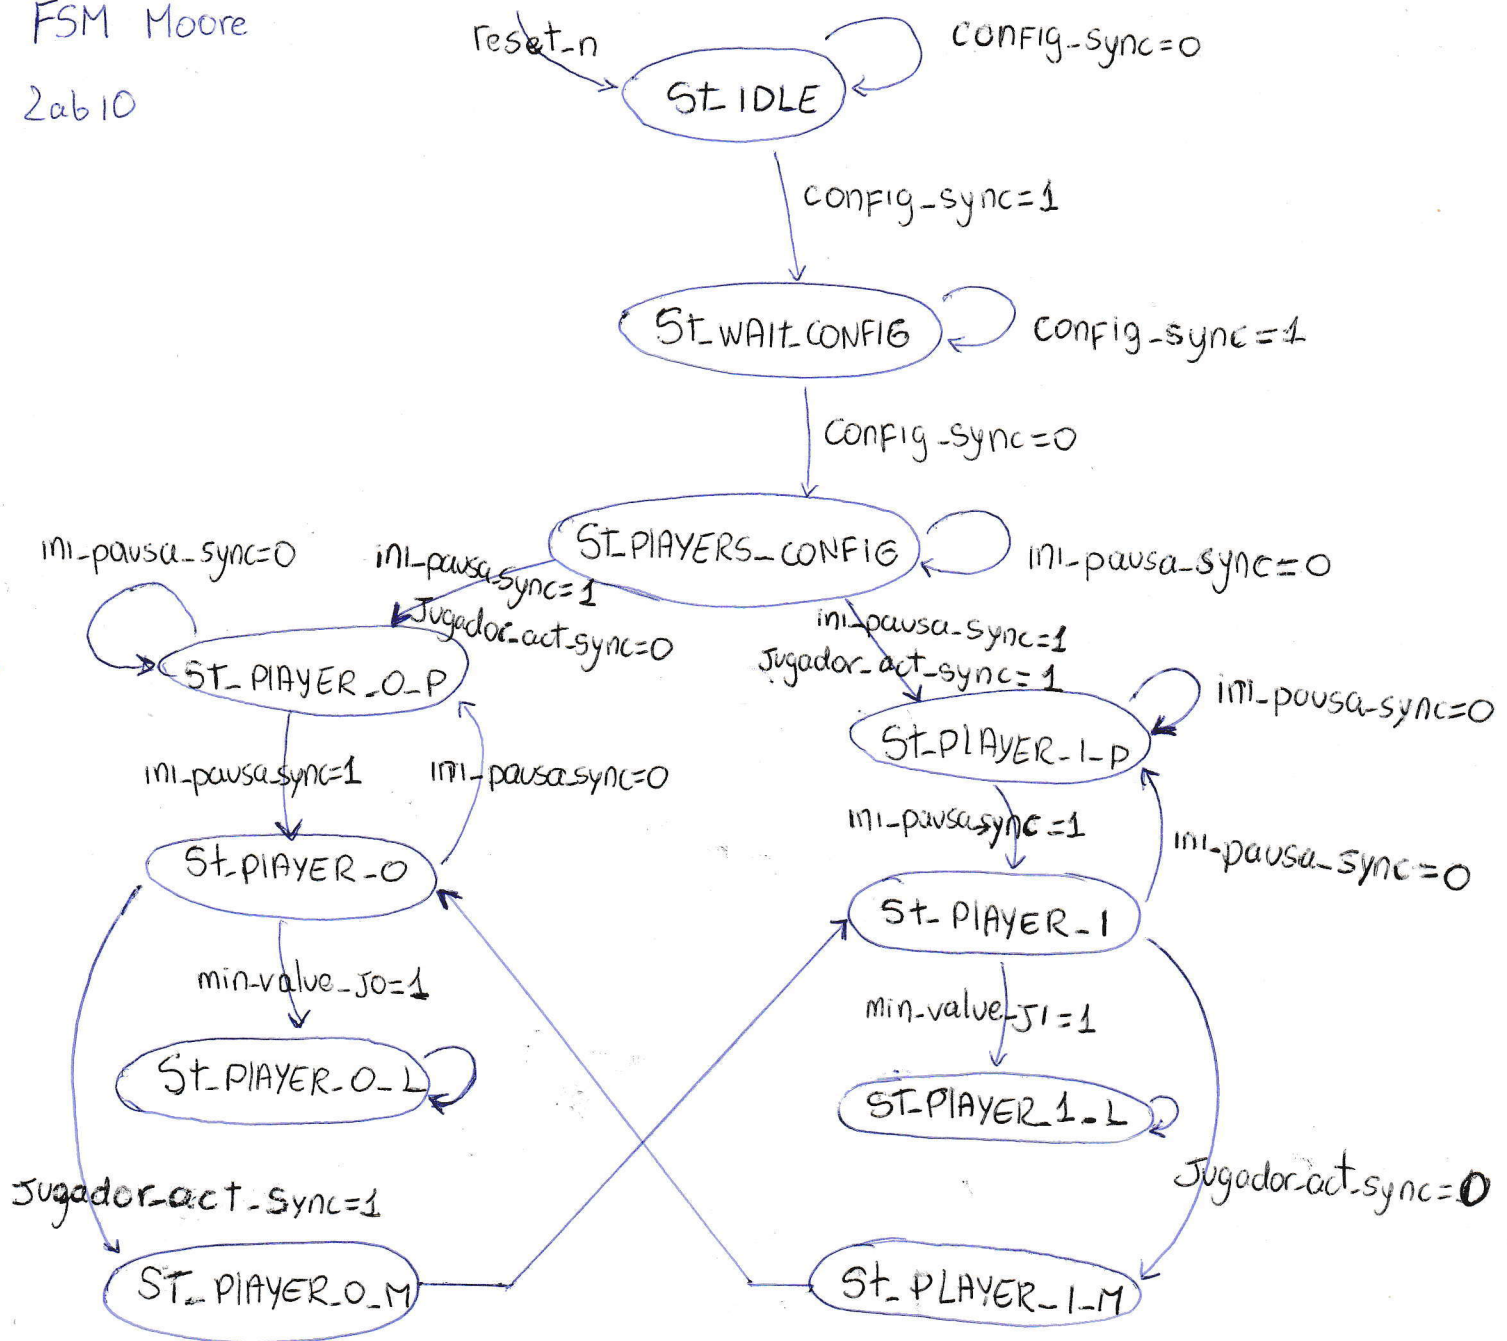 FSM Moore
2ab10
reset_n
config_sync=0
St_IDLE
config_sync=1
St_WAIt_CONFIG
config_sync=1
config_sync=0
St_PlAYERS_CONFIG
ini_pausa_sync=0
ini_pausa_sync=0
ini_pausa_sync=1
Jugador_act_sync=0
ini_pausa_sync=1
Jugador_act_sync=1
ST_PlAYER_0_P
ini_pausa_sync=0
St_PlAYER_1_P
ini_pausa_sync=1
ini_pausa_sync=0
ini_pausa_sync=1
ini_pausa_sync=0
St_PlAYER_0
St_PlAYER_1
min_value_J0=1
min_value_J1=1
St_PlAYER_0_L
ST_PlAYER_1_L
Jugador_act_sync=1
Jugador_act_sync=0
ST_PlAYER_0_M
St_PLAYER_1_M